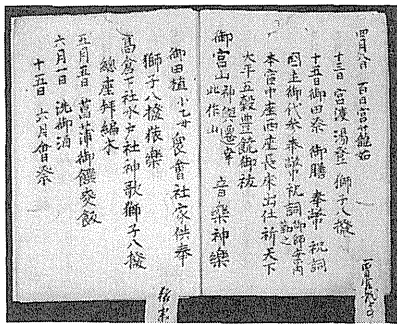 四月八日 百日宮籠始
十三日 宮渡 湯登 獅子八撥
十五日御田祭 御膳 奉幣 祝詞
國主御代参奉幣祝詞 御師案内勤之
本宮中座西座長床出仕祈天下
太平五穀豊饒御祓
御宮山 此作山 音樂神樂
御田植 小乙女 衆會社家供奉
獅子八撥 樂
高倉下社水戸社神歌獅子八撥
總座拝編木
五月五日 菖蒲御饌麥飯
六月一日 洗御酒
十五日 六月會祭